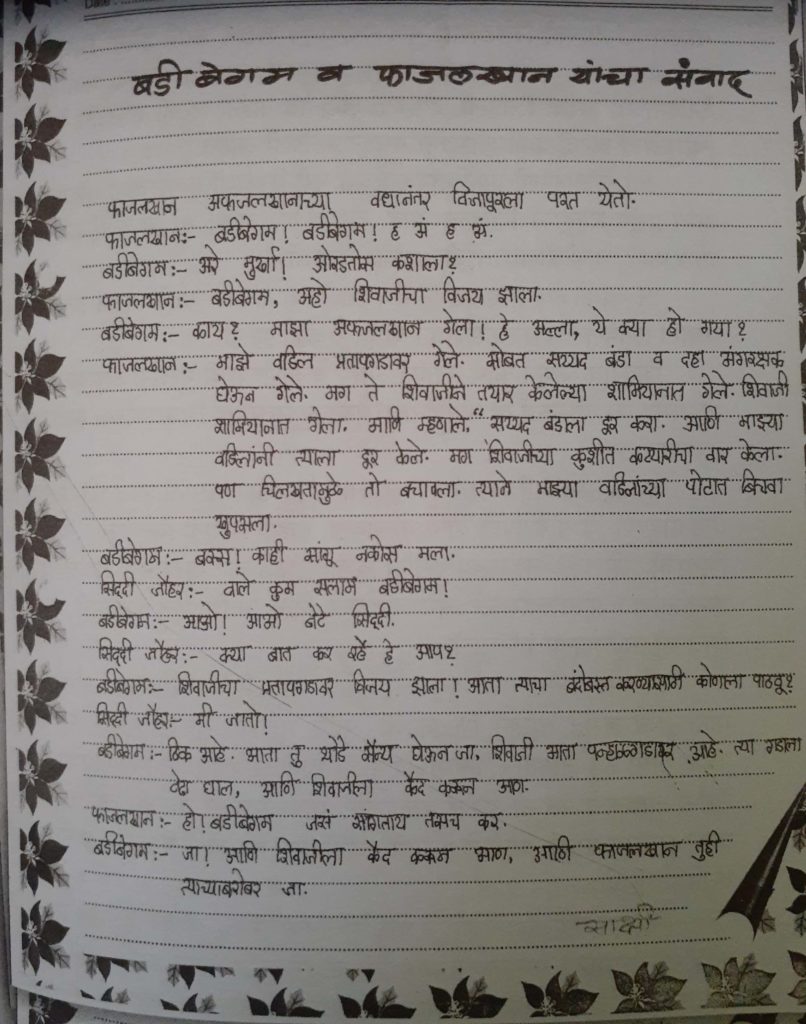 Date :
बडी बेगम व फाजलखान यांचा संवाद
फाजलखान अफजलखानाच्या वधानंतर विजापूरला परत येतो.
फाजलखान:- बडीबेगम! बडीबेगम! ह अं ह अं.
बडीबेगम:- अरे मुर्खा! ओरडतोस कशाला?
फाजलखान:- बडीबेगम, अहो शिवाजीचा विजय झाला.
बडीबेगम:- काय? माझा अफजलखान गेला! हे अल्ला, ये क्या हो गया?
फाजलखान:- माझे वडिल प्रतापगडावर गेले. सोबत सय्यद बंडा व दहा अंगरक्षक
घेऊन गेले. मग ते शिवाजीने तयार केलेल्या शामियानात गेले. शिवाजी
शामियानात गेला. आणि म्हणाले, "सय्यद बंडाला दूर करा. आणि माझ्या
वडिलांनी त्याला दूर केले. मग शिवाजीच्या कुशीत कट्यारीचा वार केला.
पण चिलखतामुळे तो बचावला. त्याने माझ्या वडिलांच्या पोटात बिचवा
खुपसला.
बडीबेगम:- बक्स! काही सांगू नकोस मला.
सिद्दी जौहर:- वाले कुम सलाम बडीबेगम!
बडीबेगम:- आओ! आओ बेटे सिद्दी.
सिद्दी जौहर:- क्या बात कर रहे हे आप?
बडीबेगम:- शिवाजीचा प्रतापगडावर विजय झाला! आता त्याचा बंदोबस्त करण्यासाठी कोणाला पाठवू?
सिद्दी जौहर:- मी जातो!
बडीबेगम:- ठिक आहे. आता तु थोडे सैन्य घेऊन जा, शिवाजी आता पन्हाळगडावर आहे. त्या गडाला
वेढा घाल, आणि शिवाजीला कैद करून आण.
फाजलखान:- हो! बडीबेगम जसं सांगताय तसच कर.
बडीबेगम:- जा! आणि शिवाजीला कैद करून आण, आणि फाजलखान तुही
त्याच्याबरोबर जा.
साक्षी